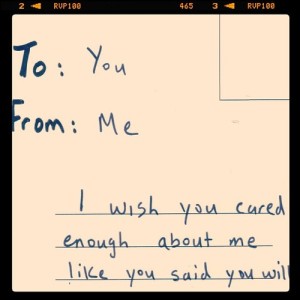 2 ◄ RVP100 465 3 ◄ RVP100
To: You
From: Me
I wish you cared
enough about me
like you said you will